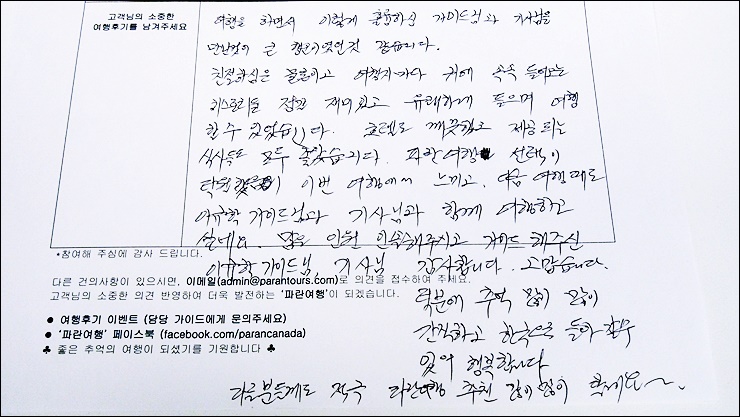 고객님의 소중한
여행후기를 남겨주세요
여행을 하면서 이렇게 훌륭하신 가이드님과 기사님을
만난것이 큰 행운이었던것 같습니다.
친절하심은 물론이고 여행지마다 귀에 속속 들어오는
히스토리를 점점 재미있고 유쾌하게 들으며 여행
할 수 있었습니다. 호텔도 깨끗했고 제공되는
식사들도 모두 좋았습니다. 파란여행 선택이
탁월 이번 여행에서 느끼고, 다음 여행때도
이규학 가이드님과 기사님과 함께 여행하고
싶네요. 많은 인원 인솔해주시고 가이드 해주신
이규학 가이드님, 기사님 감사합니다. 고맙습니다.
*참여해 주심에 감사 드립니다.
다른 건의사항이 있으시면, 이메일(admin@parantours.com)로 의견을 접수하여 주세요.
고객님의 소중한 의견 반영하여 더욱 발전하는 '파란여행'이 되겠습니다.
덕분에 추억 많이 많이
● 여행후기 이벤트 (담당 가이드에게 문의주세요)
간직하고 한국으로 돌아갈수
● '파란여행' 페이스북 (facebook.com/parancanada)
있어 행복합니다
♣ 좋은 추억의 여행이 되셨기를 기원합니다 ♣
다른분들께도 적극 파란여행 추천 많이많이 할께요~.